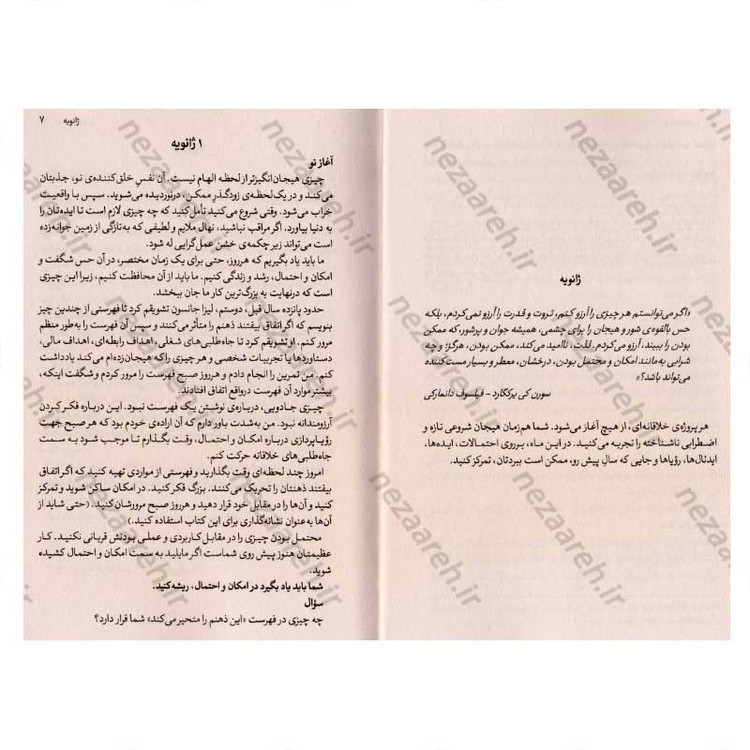 ژانویه
«اگر می‌توانستم هر چیزی را آرزو کنم، ثروت و قدرت را آرزو نمی‌کردم، بلکه
حس بالقوه‌ی شور و هیجان را برای چشمی، همیشه جوان و پرشور، که ممکن
بودن را ببیند، آرزو می‌کردم. لذت، ناامید می‌کند، ممکن بودن، هرگز! و چه
شرابی به‌مانند امکان و محتمل بودن، درخشان، معطر و بسیار مست‌کننده
می‌تواند باشد؟»
سورن کی یرکگارد - فیلسوف دانمارکی
هر پروژه‌ی خلاقانه‌ای، از هیچ آغاز می‌شود. شما هم‌زمان هیجان شروعی تازه و
اضطرابی ناشناخته را تجربه می‌کنید. در این ماه، بر روی احتمالات، ایده‌ها،
ایدئال‌ها، رؤیاها و جایی که سالِ پیش رو، ممکن است ببردتان، تمرکز کنید.
ژانویه ۷
۱ ژانویه
آغاز نو
چیزی هیجان‌انگیزتر از لحظه الهام نیست. آن نفسِ خلق‌کننده‌ی نو، جذبتان
می‌کند و در یک لحظه‌ی زودگذرِ ممکن، درنوردیده می‌شوید. سپس با واقعیت
خراب می‌شود. وقتی شروع می‌کنید تأمل کنید که چه چیزی لازم است تا ایده‌تان را
به دنیا بیاورد. اگر مراقب نباشید، نهال ملایم و لطیفی که به‌تازگی از زمین جوانه‌زده
است می‌تواند زیر چکمه‌ی خشن عمل‌گرایی له شود.
ما باید یاد بگیریم که هرروز، حتی برای یک زمان مختصر، در آن حس شگفت و
امکان و احتمال، رشد و زندگی کنیم. ما باید از آن محافظت کنیم، زیرا این چیزی
است که درنهایت به بزرگ‌ترین کار ما جان ببخشد.
حدود پانزده سال قبل، دوستم، لیزا جانسون تشویقم کرد تا فهرستی از چندین چیز
بنویسم که اگر اتفاق بیفتند ذهنم را متأثر می‌کنند و سپس آن فهرست را به‌طور منظم
مرور کنم. او تشویقم کرد تا جاه‌طلبی‌های شغلی، اهداف رابطه‌ای، اهداف مالی،
دستاوردها یا تجربیات شخصی و هر چیزی را که هیجان‌زده‌ام می‌کند یادداشت
کنم. من تمرین را انجام دادم و هرروز صبح فهرست را مرور کردم و شگفت اینکه،
بیشتر موارد آن فهرست درواقع اتفاق افتادند.
چیزی جادویی، درباره‌ی نوشتن یک فهرست نبود. این درباره فکر کردن
آرزومندانه نبود. من به‌شدت باور دارم که آن اراده‌ی خودم بود که هر صبح جهت
رؤیاپردازی درباره امکان و احتمال، وقت بگذارم تا موجب شود به سمت
جاه‌طلبی‌های خلاقانه حرکت کنم.
امروز چند لحظه‌ای وقت بگذارید و فهرستی از مواردی تهیه کنید که اگر اتفاق
بیفتند ذهنتان را تحریک می‌کنند. بزرگ فکر کنید. در امکان ساکن شوید و تمرکز
کنید و آن‌ها را در مقابل خود قرار دهید و هرروز صبح مرورشان کنید. (حتی شاید از
آن‌ها به‌عنوان نشانه‌گذاری برای این کتاب استفاده کنید.)
محتمل بودن چیزی را در مقابل کاربردی و عملی بودنش قربانی نکنید. کار
عظیمتان هنوز پیش روی شماست اگر مایلید به سمت امکان و احتمال کشیده
شوید.
شما باید یاد بگیرد در امکان و احتمال، ریشه کنید.
سؤال
چه چیزی در فهرست «این ذهنم را متحیر می‌کند» شما قرار دارد؟
nezaareh.ir
nezaareh.ir
nezaareh.ir
nezaareh.ir
nezaareh.ir
nezaareh.ir
nezaareh.ir
nezaareh.ir
nezaareh.ir
nezaareh.ir
nezaareh.ir
nezaareh.ir